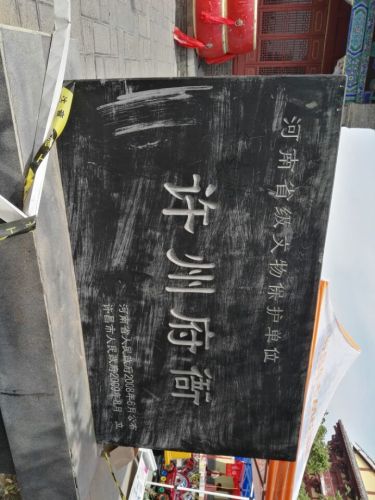 河南省级文物保护单位
许州府衙
河南省人民政府2008年6月公布
许昌市人民政府2009年 月 立